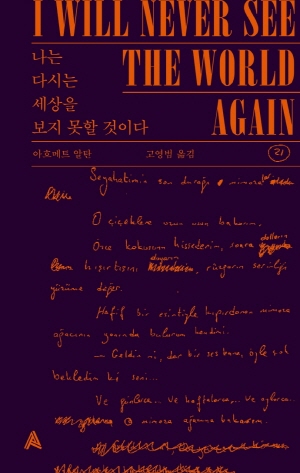 I WILL NEVER SEE
THE WORLD
AGAIN
나는
다시는
세상을
보지 못할 것이다
아흐메트 알탄
고영범 옮김
21
Seyahatimin son durağı mimoza
O çiçeklere uzun uzun bakarım,
Önce kokusunu hissederim, sonra dalların
hışırtısını duyarım rüzgârın serinliği
yüzüme değer.
Hafif bir esintiyle kıpırdanan mimoza
ağacının yanında bulurum kendimi.
— Geldin mi, der bir ses bana, öyle çok
bekledim ki seni...
Ve günlerce.. Ve haftalarca,.. Ve aylarca..
o mimoza ağacına bakarım.